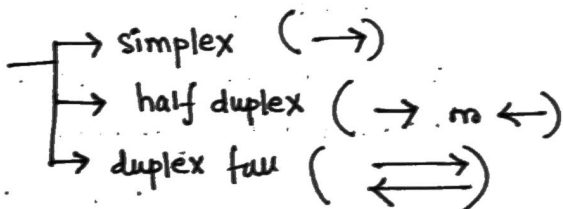 simplex (→)
half duplex (→ m ←)
duplex full (⇄)